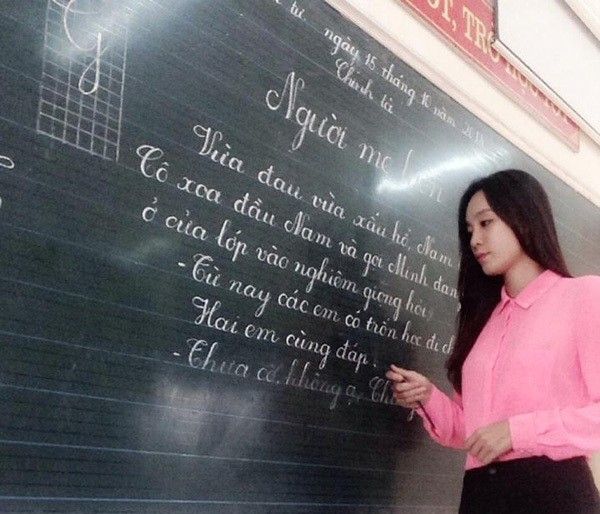 G
tư ngày 15 tháng 10 năm
Chính tả
Người mẹ hiền
Vừa đau vừa xấu hổ, Nam
Cô xoa đầu Nam và gọi Minh đan
ở cửa lớp vào nghiêm giọng hỏi
- Từ nay các em có trốn học đi ch
Hai em cùng đáp.
- Thưa cô, không ạ. Ch
ỐT, TRÒ HỌC TỐT